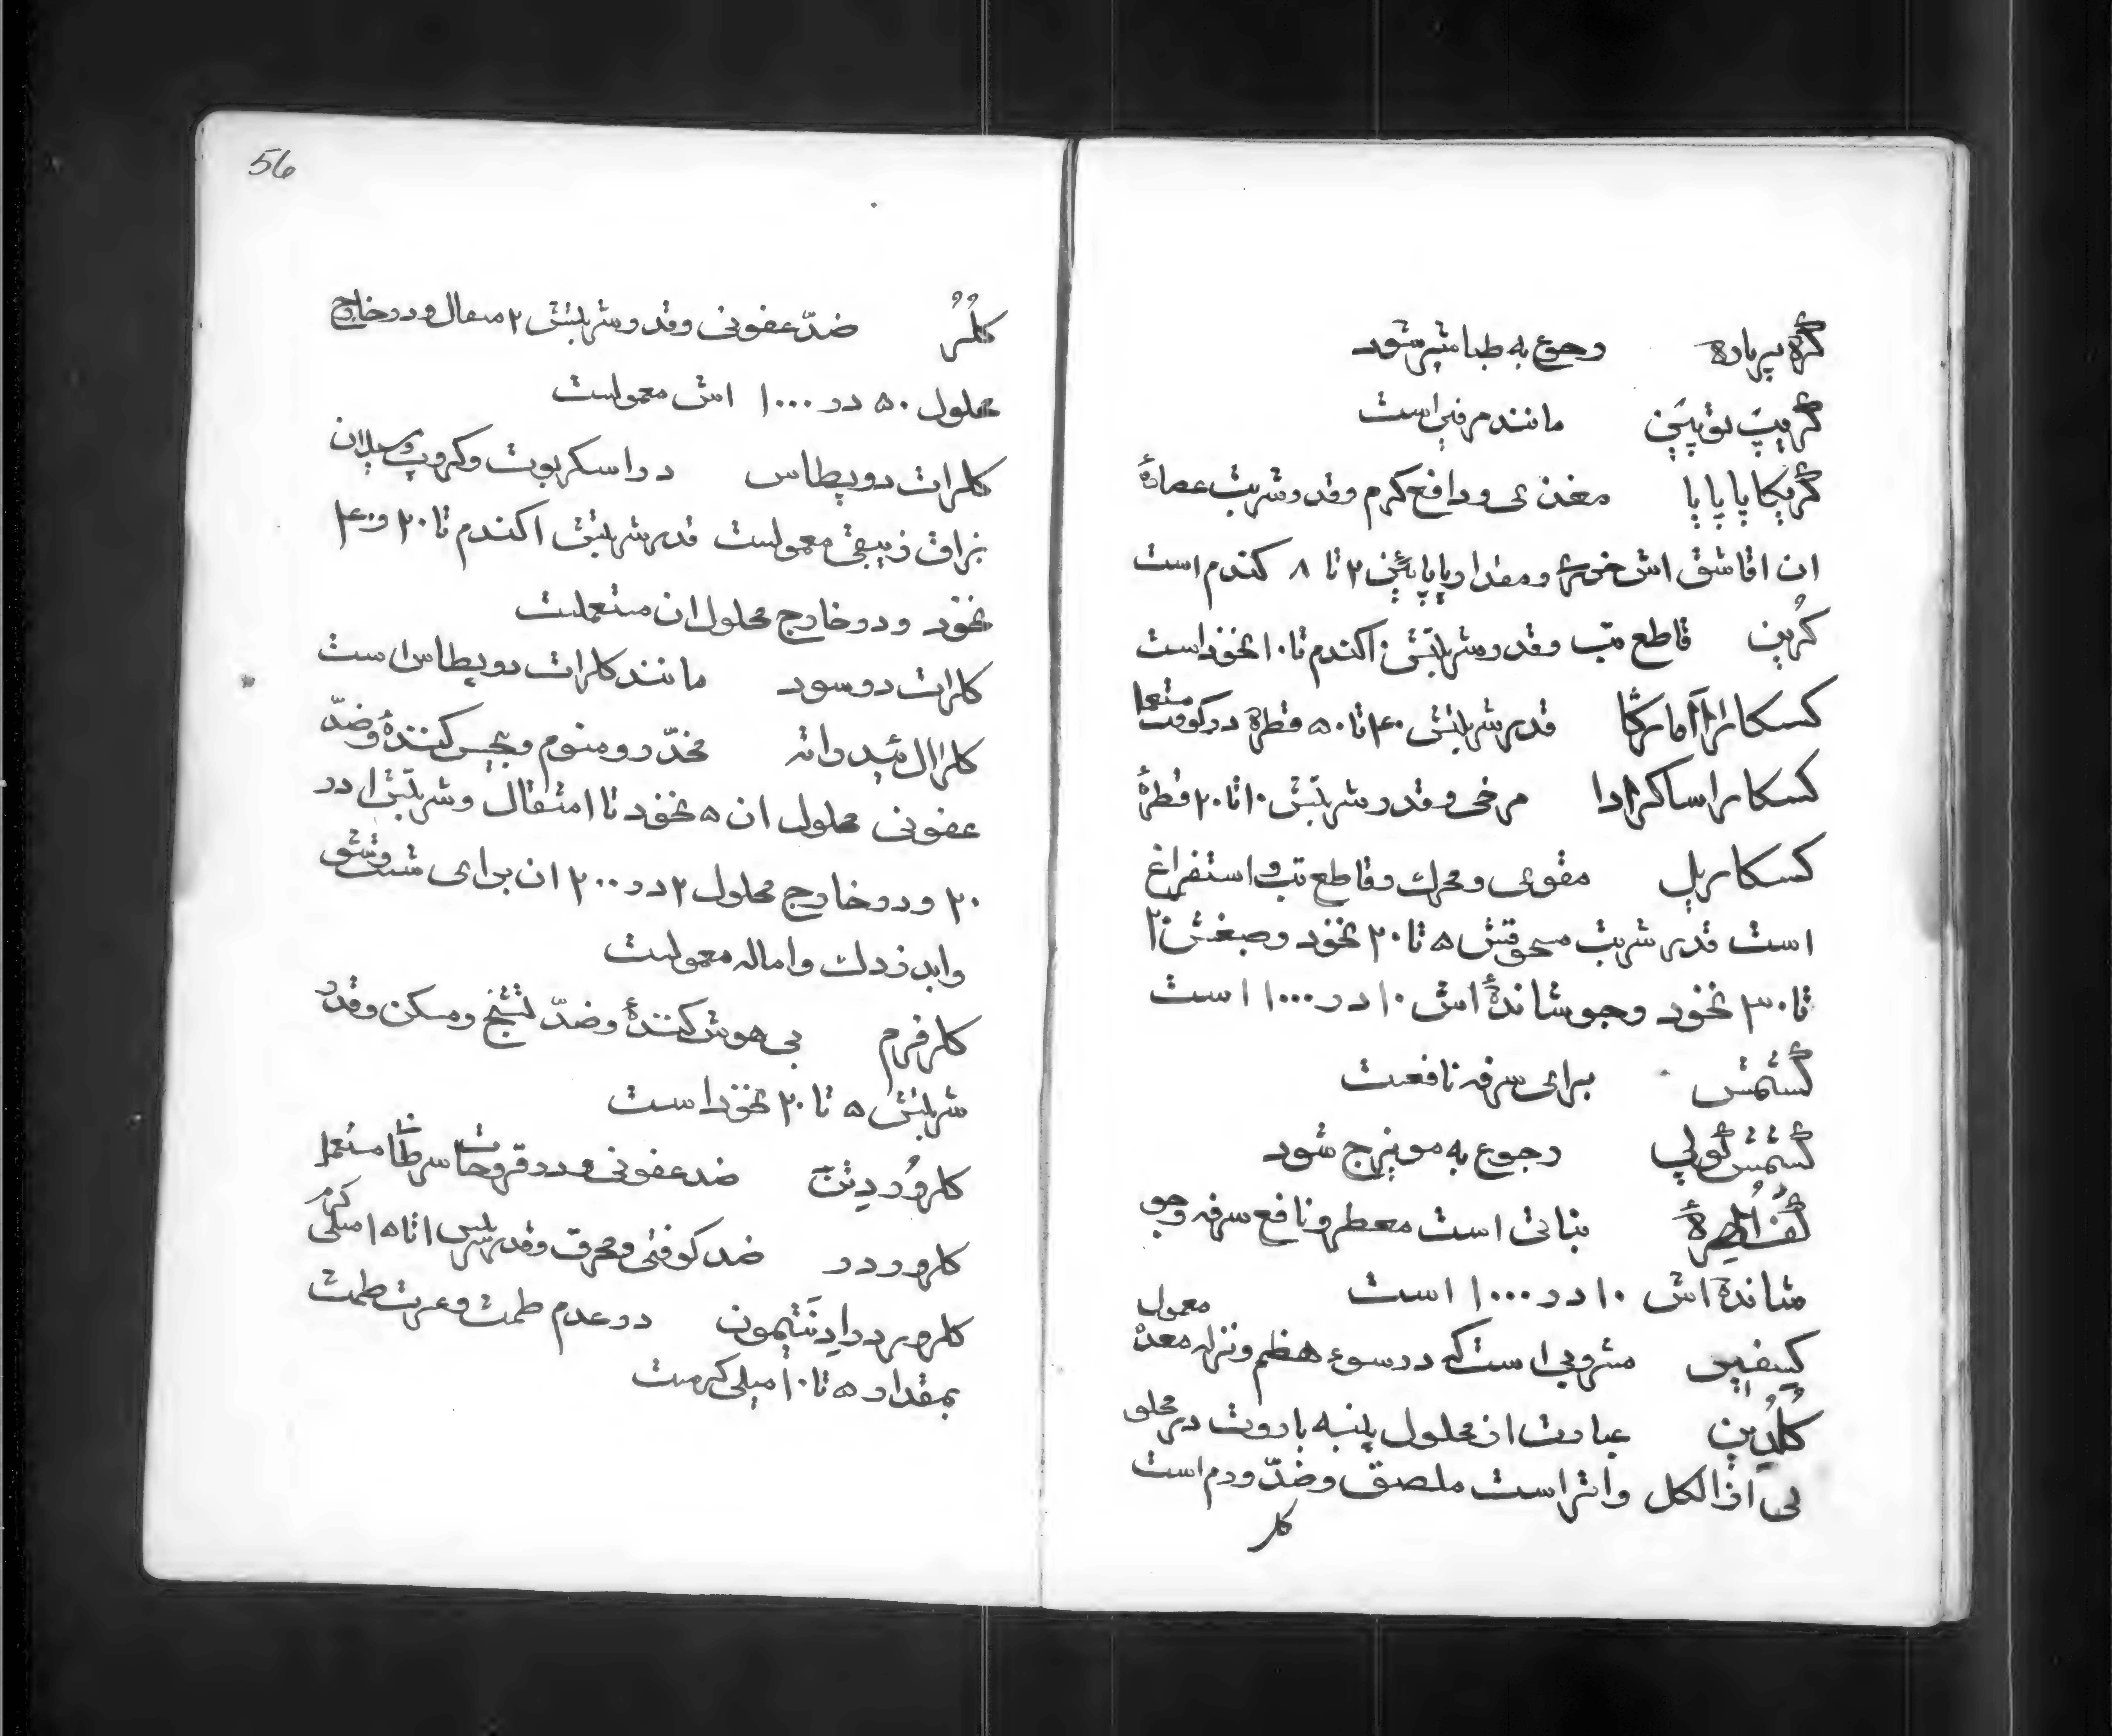 گره پرپاره رجوع به طباشیر شود
گریپ توپین مانند مرفین است
گریکا پاپایا مغذی و دافع کرم و قدر شربت عصارهٔ
ان ۱ قاشق اش خوری و مقدار پاپائین ۲ تا ۸ گندم است
کرین قاطع تب و قدر شربتش از ۱ گندم تا ۱۰ نخود است
کسکارا آمارگا قدر شربتش ۴۰ تا ۵۰ قطره در کوفت مستعمل
کسکارا ساکرادا مرخی و قدر شربتش ۱۰ تا ۲۰ قطرهٔ
کسکاریل مقوی و محرک و قاطع تب و استفراغ
است قدر شربت مسحوقش ۵ تا ۲۰ نخود و صبغش ۲۰
تا ۳۰ نخود و جوشاندهٔ اش ۱۰ در ۱۰۰۰ است
گشمش برای سرفه نافعست
گشمش گولی رجوع به مویزج شود
نباتی است معطر و نافع سرفه و جو
شاندهٔ اش ۱۰ در ۱۰۰۰ است
کیفیر مشروبی است که در سوء هظم و نزله معده معمول
کلدین عبارت از محلول پنبه باروت در محلو
لی از الکل و اتر است ملصق و ضدّ ورم است
کلر
56
کلر ضدّ عفونی و قدر شربتش ۲ مثقال و در خارج
محلول ۵۰ در ۱۰۰۰ اش معمولست
کلرات دو پطاس در اسکربوت و کروپ و سیلان
بزاق زیبقی معمولست قدر شربتش ۱ گندم تا ۲۰ و ۴۰
نخود و در خارج محلول ان مستعملست
کلرات دو سود مانند کلرات دو پطاس است
کلرال ئیدراته مخدّر و منوم و بی‌حس کنندهٔ و ضدّ
عفونی محلول ان ۵ نخود تا ۱ مثقال و شربتش ۱ در
۲۰ و در خارج محلول ۲ در ۲۰۰ ان برای شست و شو
وابدزدک و اماله معمولست
کلرفرم بی هوش کنندهٔ و ضدّ تشنج و مسکن و قدر
شربتش ۵ تا ۲۰ نخود است
ضد عفونی و در قروحات سرطان مستعمل
ضد کوفتی و محرق و قدر شربتش ۱ تا ۱۵ میلی گرم
در عدم طمث و عسرت طمث
بمقدار ۵ تا ۱۰ میلی گرمست